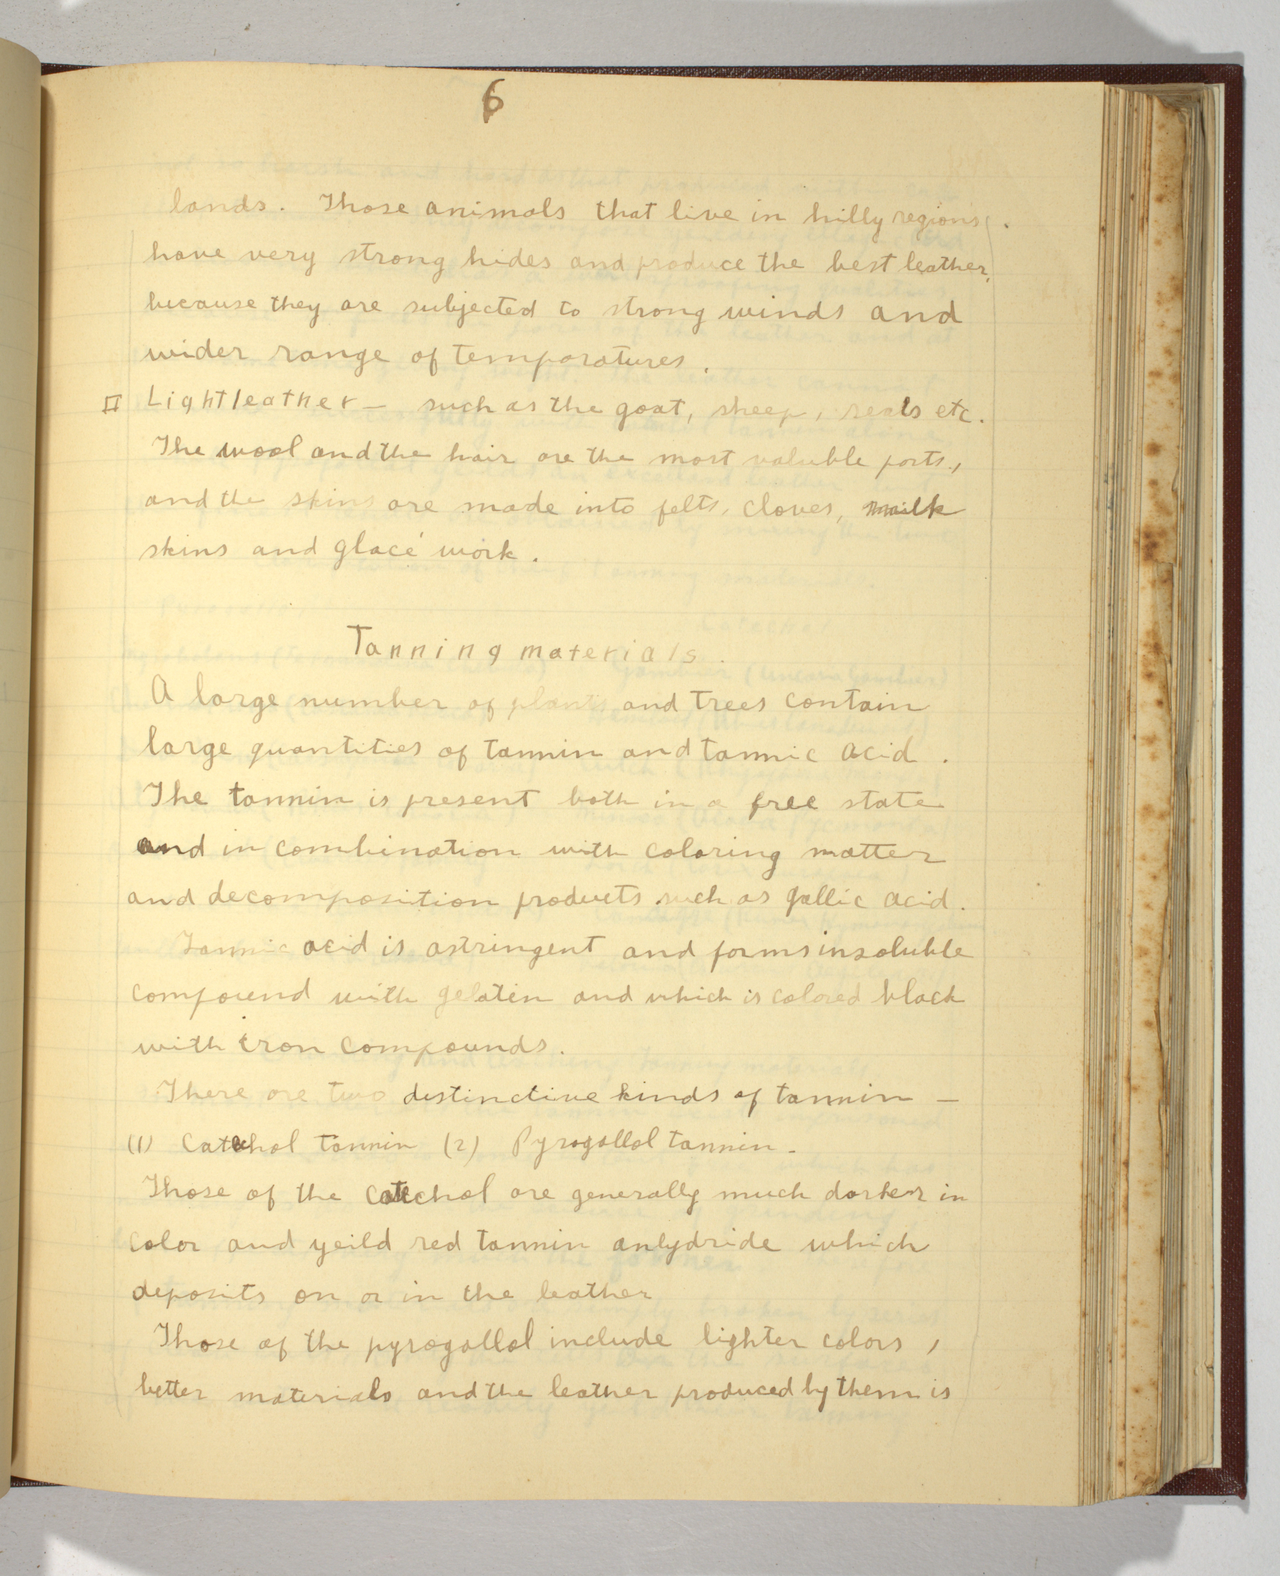 6
lands. Those animals that live in hilly regions,
have very strong hides and produce the best leather,
because they are subjected to strong winds and
wider range of temporatures.
II Light leather — such as the goat, sheep, seals etc.
The wool and the hair are the most valuble parts,
and the skins are made into felts, cloves,
skins and glacé work.
Tanning materials.
A large number of plants and trees contain
large quantities of tannin and tannic acid.
The tannin is present both in a free state
and in combination with coloring matter
and decomposition products such as gallic acid.
Tannic acid is astringent and forms insoluble
compound with gelatin and which is colored black
with iron compounds.
There are two distinctive kinds of tannin —
(1) Catechol tannin (2) Pyrogallol tannin.
Those of the catechol are generally much darker in
color and yeild red tannin anhydride which
deposits on or in the leather
Those of the pyrogallol include lighter colors,
better materials and the leather produced by them is